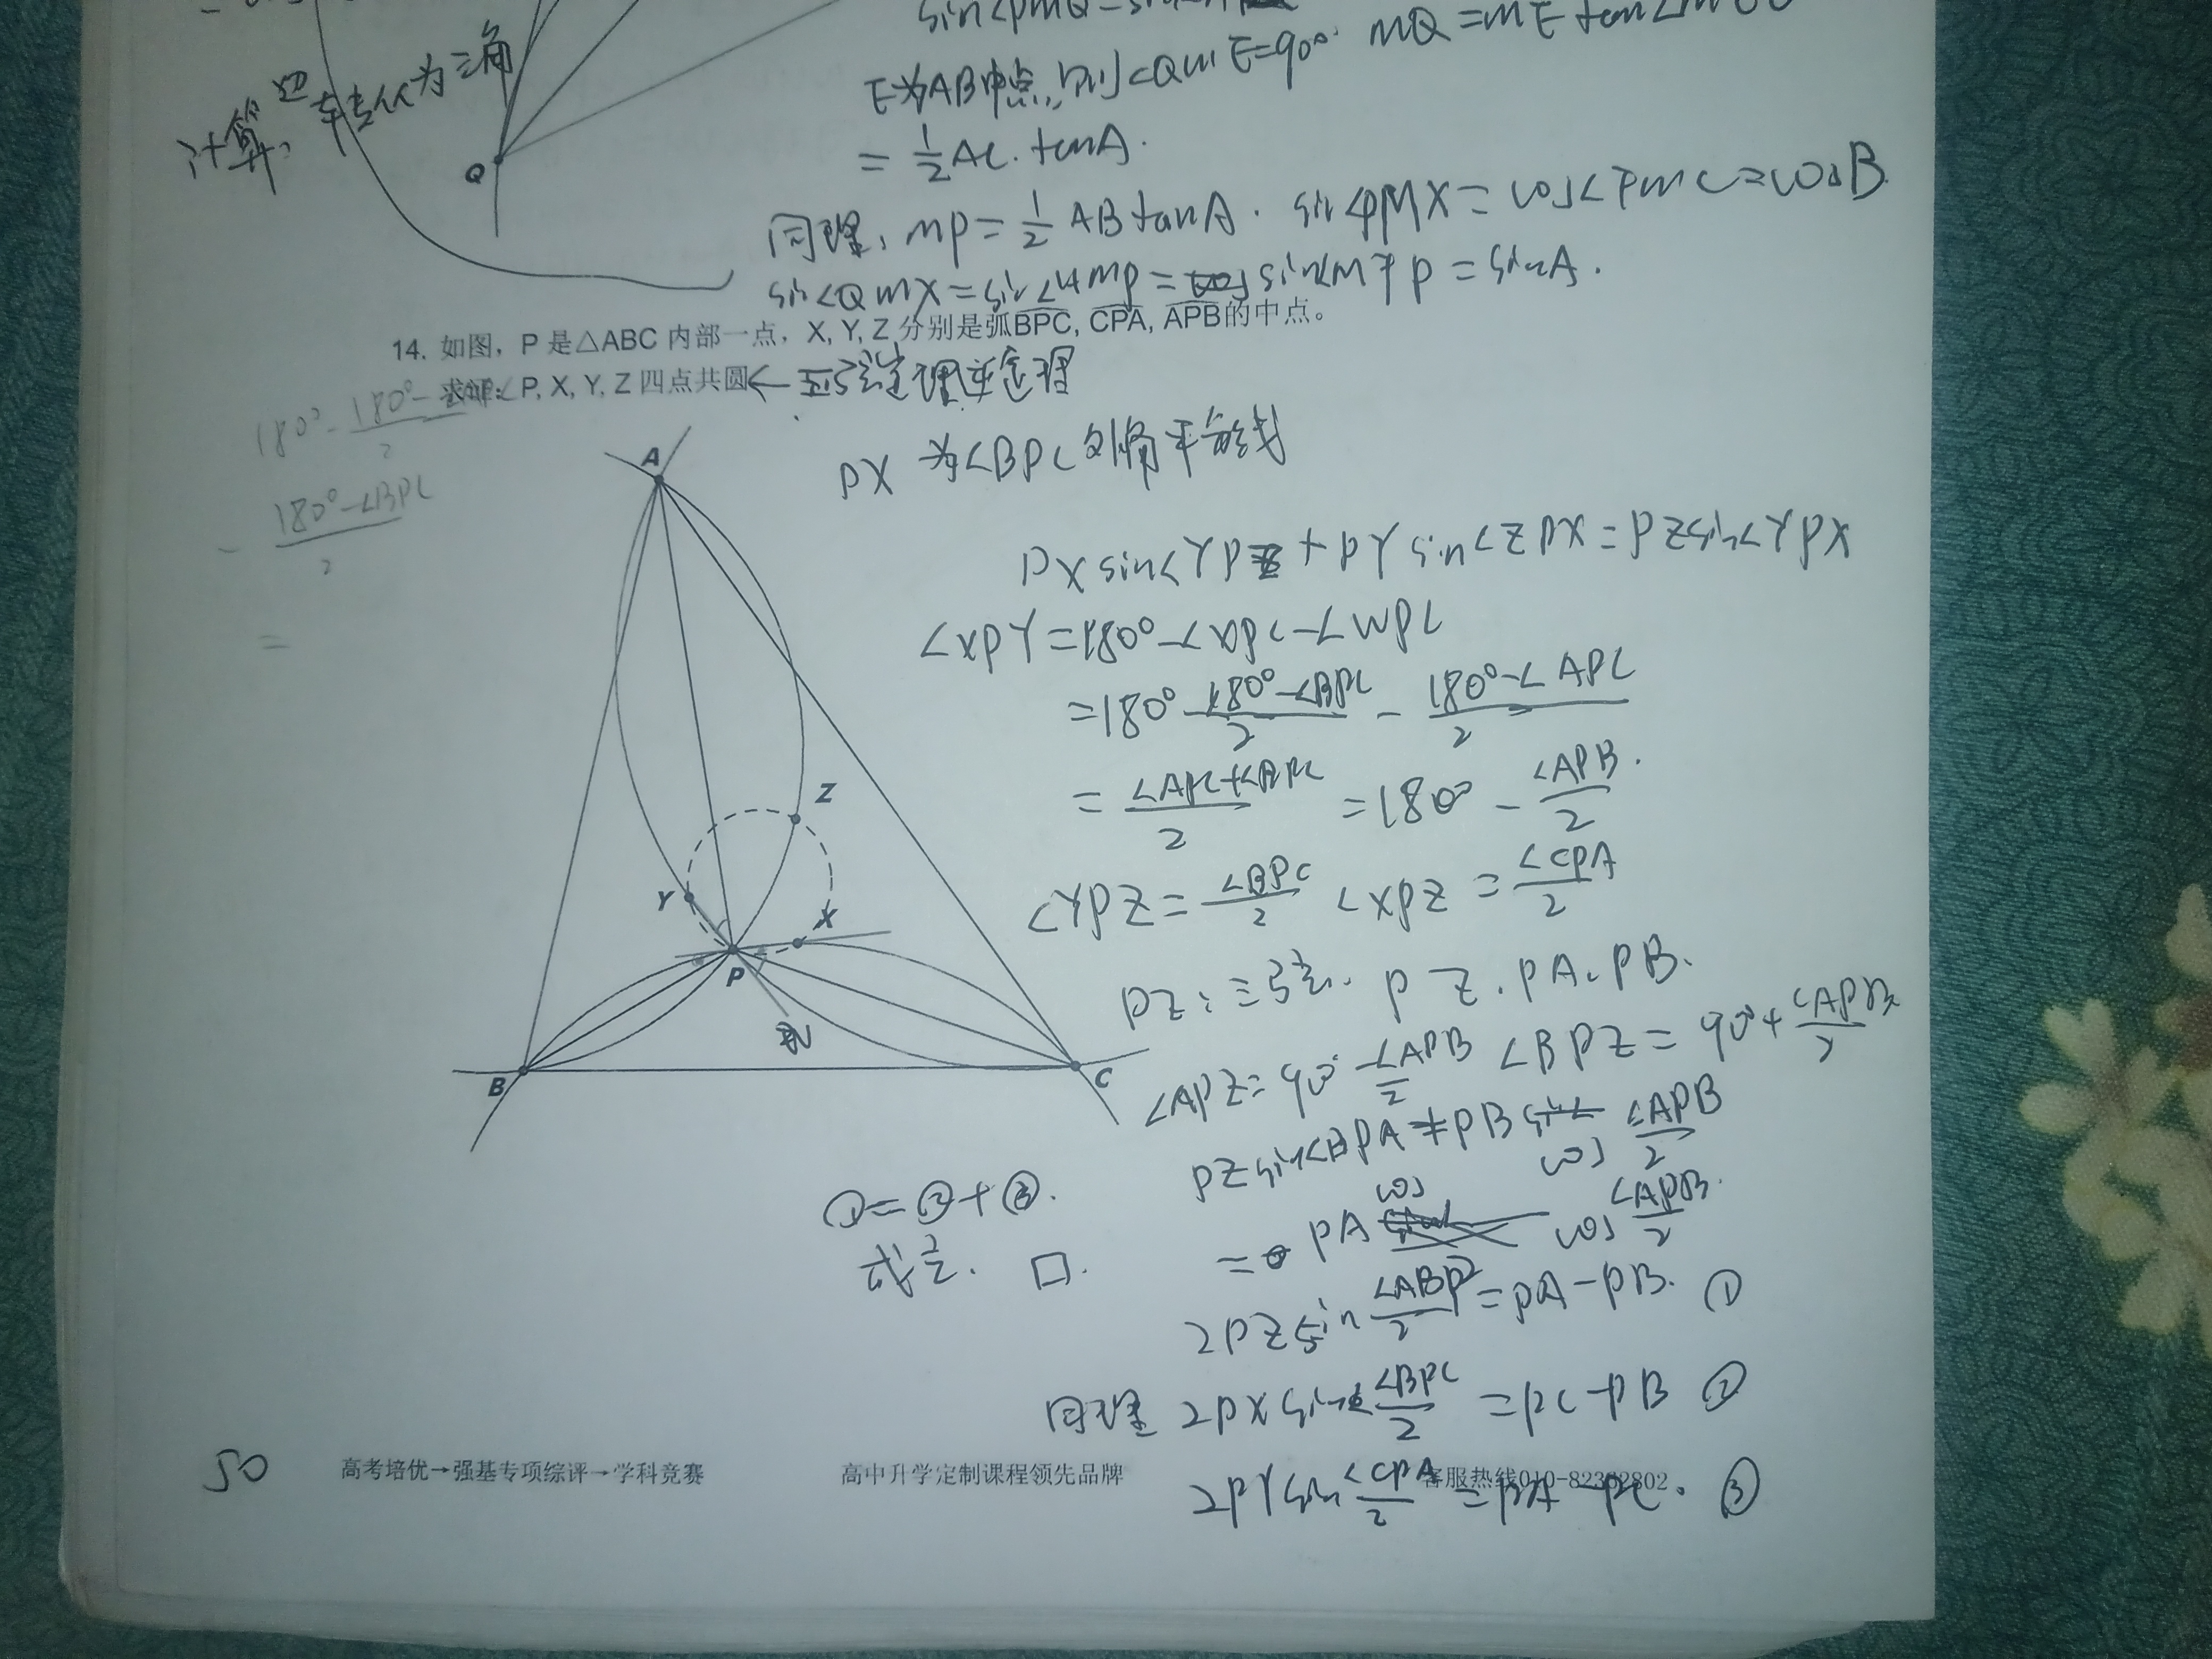 计算, 边转化为三角
Q
E为AB中点, 则∠QME=90°. MQ=ME
= 1/2 AC. tanA.
同理, MP= 1/2 AB tanA. sin∠PMX= cos∠PMC=cosB
sin∠QMX=sin∠HMP= sin∠MFP = sinA.
14. 如图，P 是△ABC 内部一点，X, Y, Z 分别是弧BPC, CPA, APB的中点。
求解: P, X, Y, Z 四点共圆 ← 三弦定理逆定理
180° - (180° -)/2
- (180°-∠BPC)/2
=
PX 为∠BPC 外角平分线
PX sin∠YPZ + PY sin∠ZPX = PZ sin∠YPX
∠XPY=180°-∠XPC-∠NPC
=180° - (180°-∠BPC)/2 - (180°-∠APC)/2
= (∠APC+∠BPC)/2 =180° - ∠APB/2.
∠YPZ= ∠BPC/2 ∠XPZ = ∠CPA/2
PZ: 三弦. PZ. PA. PB.
∠APZ= 90°-∠APB/2 ∠BPZ= 90°+ ∠APB/2
PZ sin∠BPA + PB cos ∠APB/2
= PA cos ∠APB/2.
2PZ sin ∠ABP/2 =PA-PB. ①
同理 2PX sin ∠BPC/2 =PC-PB ②
2PY sin ∠CPA/2 =PA-PC. ③
①=②+③.
成立. □.
A
Z
Y
X
P
N
B
C
50
高考培优→强基专项综评→学科竞赛 高中升学定制课程领先品牌 客服热线010-82332802